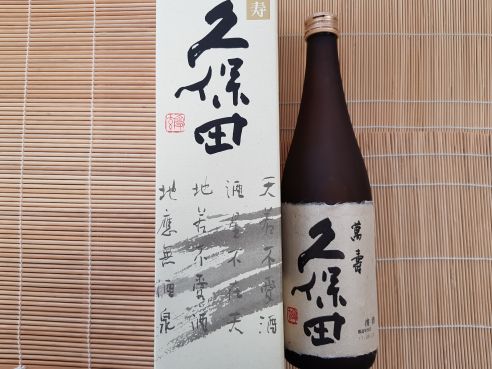 寿
久保田
天若不愛酒
酒星不在天
地若不愛酒
地應無酒泉
萬壽
久保田